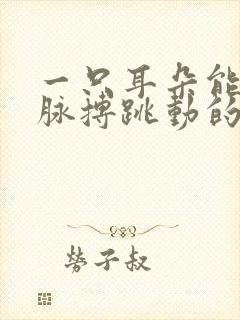 一只耳朵能
脉搏跳動的
勞子叔